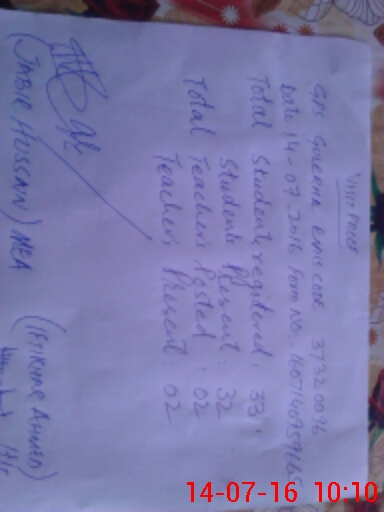 VISIT PROOF
GPS Gulerma EMIS code 37320096
Date 14-07-2016 Form No:
Total Students registered: 33
Students Present: 32
Total Teachers Posted: 02
Teachers Present: 02
(JABIR HUSSAIN) MEA
(IFTIKHAR AHMED)
14-07-16 10:10